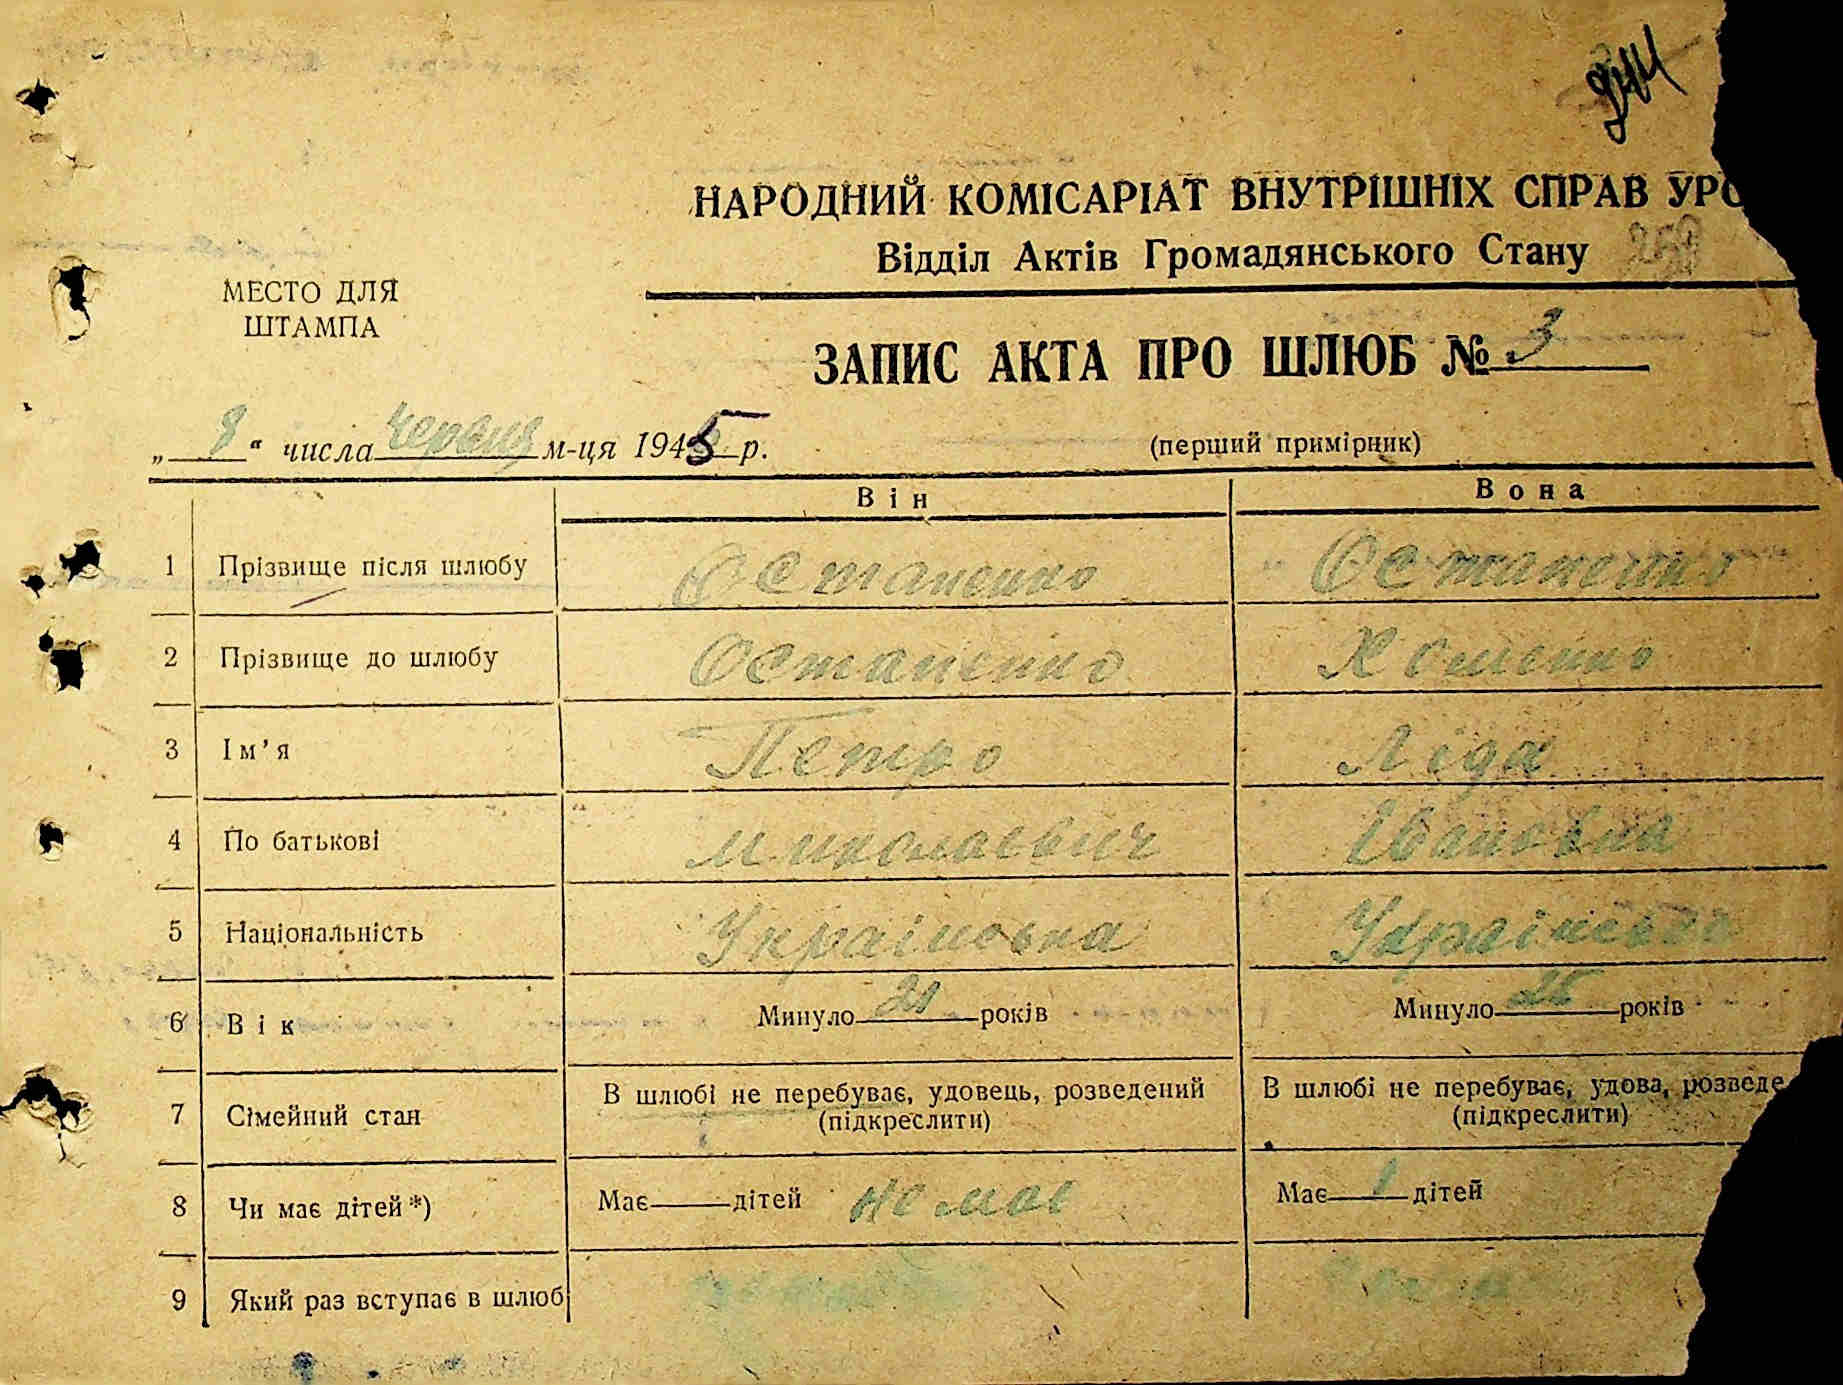 244
НАРОДНИЙ КОМІСАРІАТ ВНУТРІШНІХ СПРАВ УРС
Відділ Актів Громадянського Стану
МЕСТО ДЛЯ
ШТАМПА
ЗАПИС АКТА ПРО ШЛЮБ № 3
„ 8 “ числа червня м-ця 1945 р.
(перший примірник)
Він Вона
1 Прізвище після шлюбу Остапенко Остапенко
2 Прізвище до шлюбу Остапенко Хоменко
3 Ім’я Петро Ліда
4 По батькові Миколаевич Івановна
5 Національність Українська Українська
6 Вік Минуло 21 років Минуло років
7 Сімейний стан В шлюбі не перебуває, удовець, розведений В шлюбі не перебуває, удова, розведе
(підкреслити) (підкреслити)
8 Чи має дітей *) Має дітей не має Має 1 дітей
9 Який раз вступає в шлюб